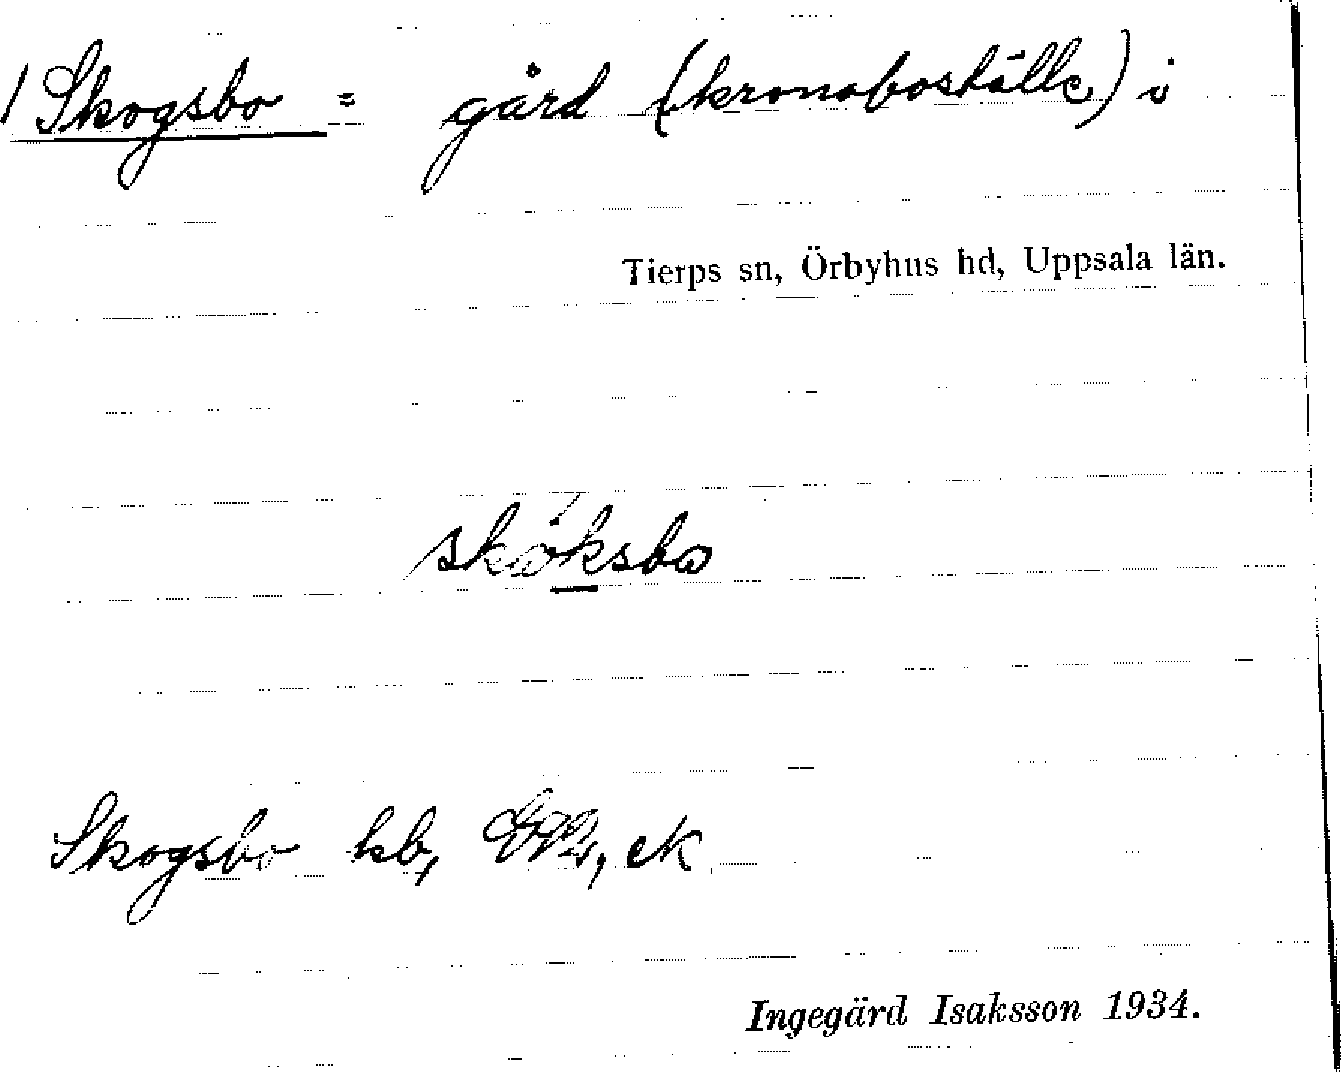 / Skogsbo = gård (kronoboställe) i
Tierps sn, Örbyhus hd, Uppsala län.
skòksbo
Skogsbo kb, ek
Ingegärd Isaksson 1934.